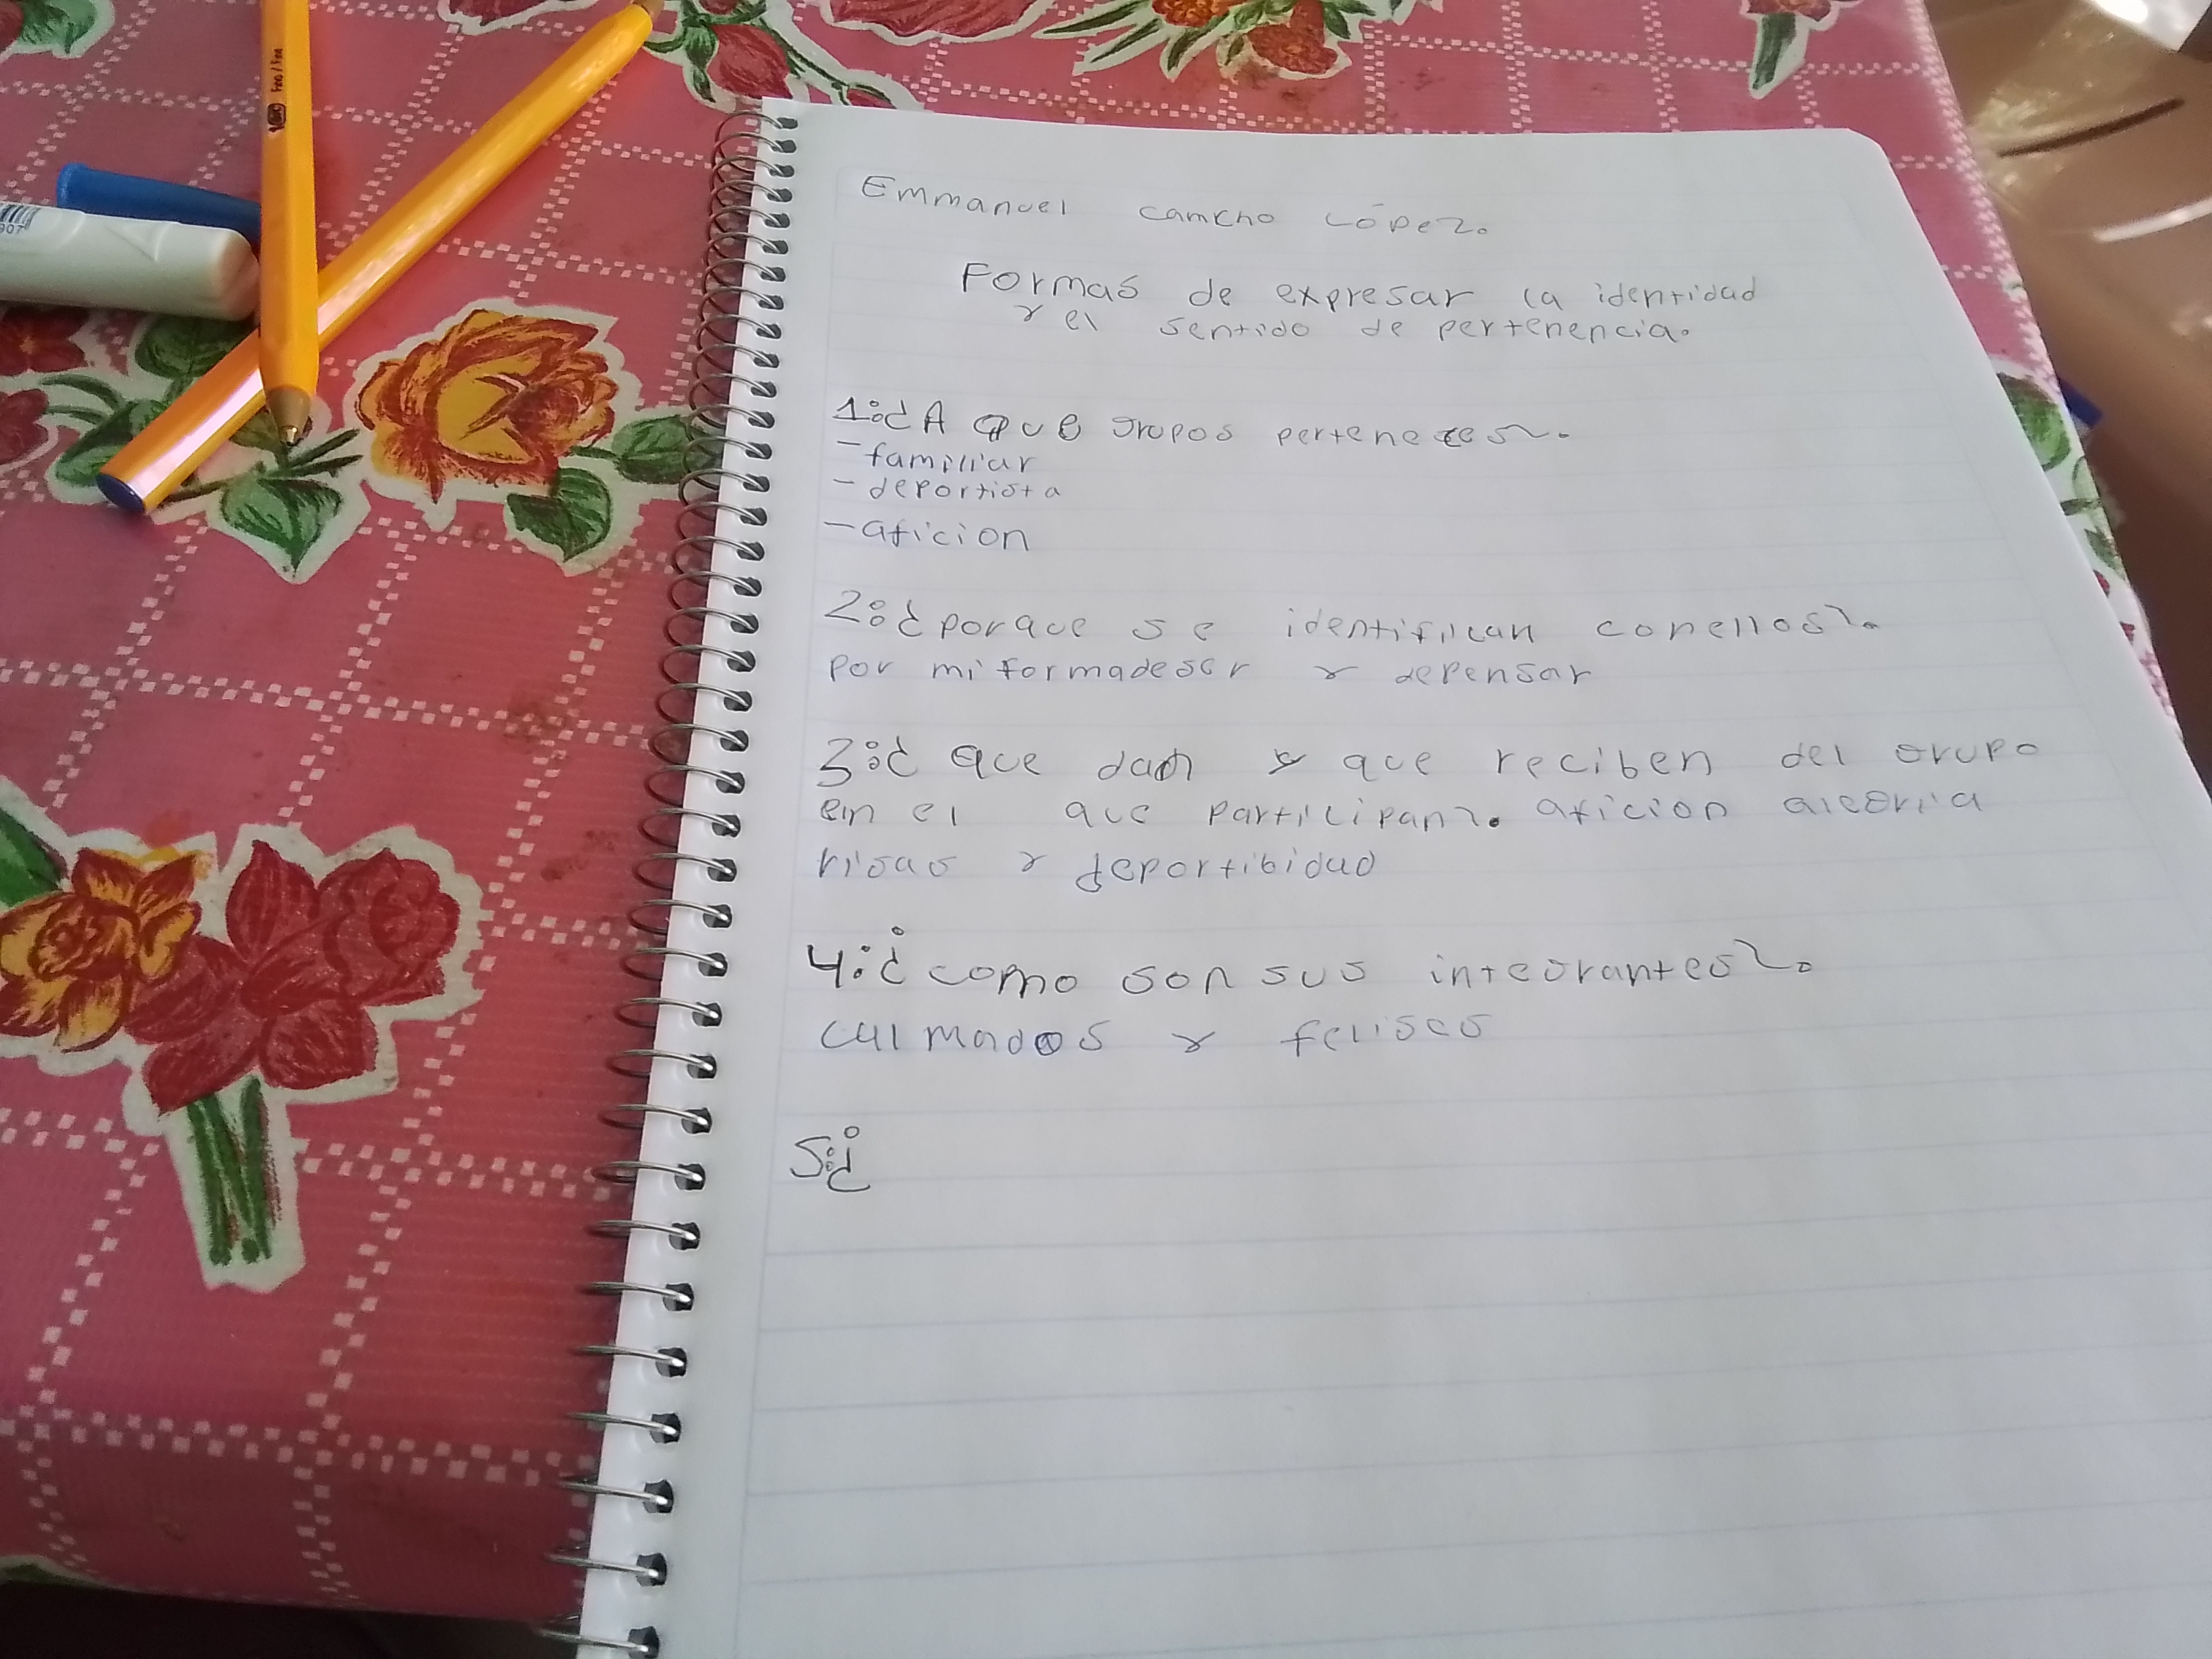 Emmanuel camcho López.
Formas de expresar la identidad
y el sentido de pertenencia.
1:¿A que grupos perteneces?.
- familiar
- deportista
- aficion
2:¿porque se identifican conellos?.
por mi formadeser y depensar
3:¿que dan y que reciben del grupo
en el que participan?. aficion alegria
risas y deportibidad
4:¿como son sus integrantes?.
calmados y felises
5:¿
BIC Fino / Fine
907